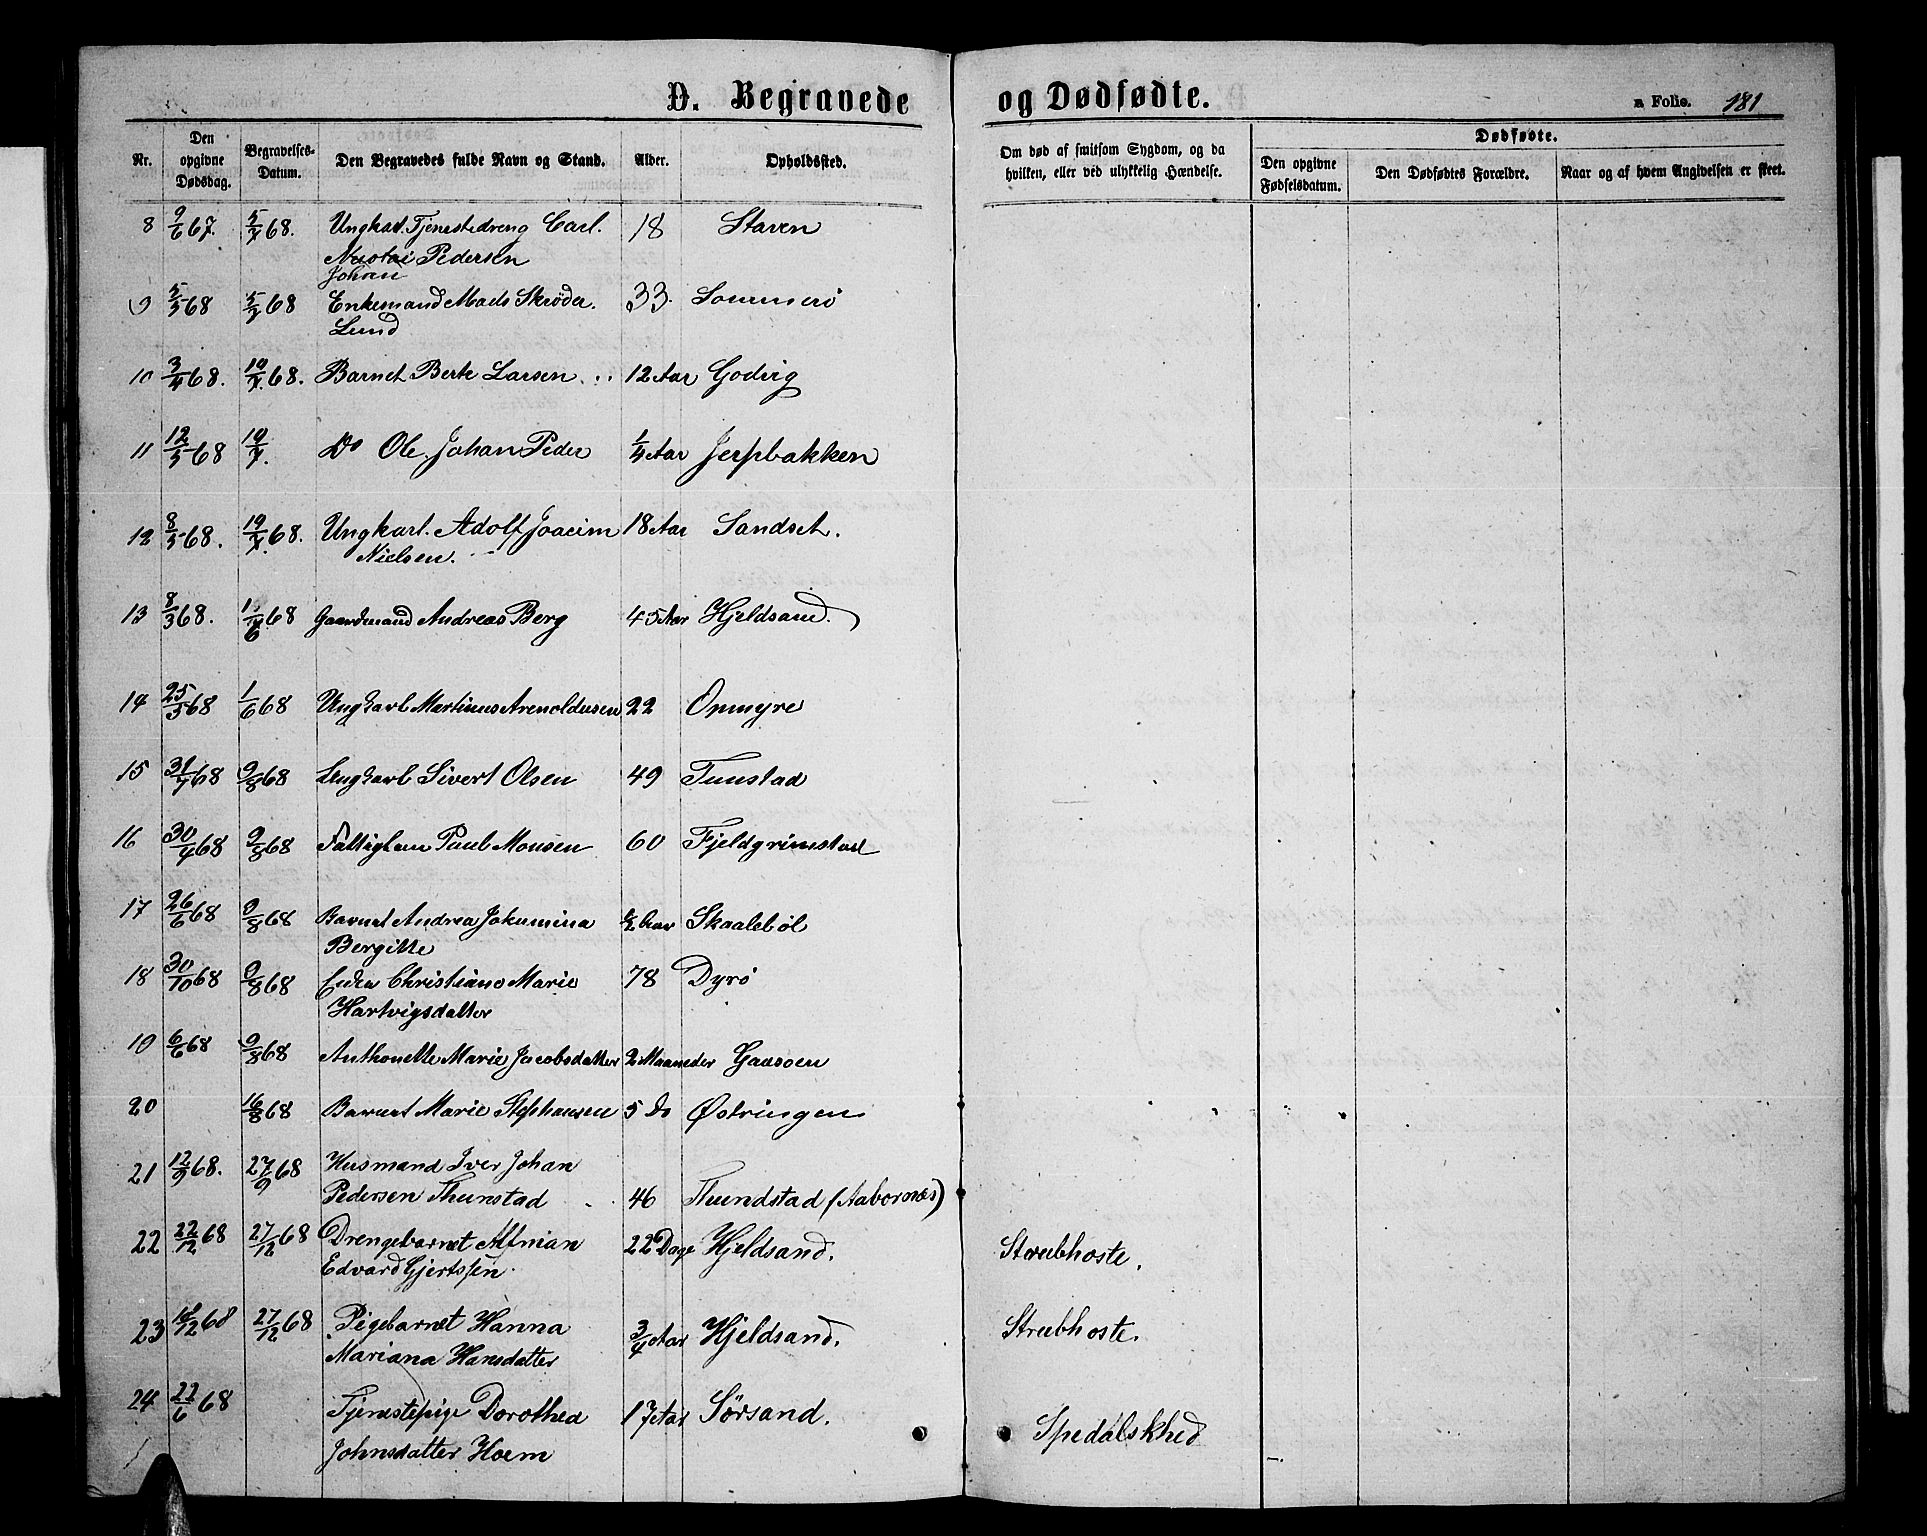 D. Begravede og Dødfødte.
a Folio. 181
Nr.
Den opgivne Dødsdag.
Begravelses-Datum.
Den Begravedes fulde Navn og Stand.
Alder.
Opholdssted.
Om død af smitsom Sygdom, og da hvilken, eller ved ulykkelig Hændelse.
Dødfødte.
Den opgivne Fødselsdatum.
Den Dødfødtes Forældre.
Naar og af hvem Angivelsen er skeet.
8 9/6 67. 5/7 68. Ungkarl Tjenestedreng Carl. 18 Staven
Pedersen
Johan
9 5/5 68 5/7 68 Enkemand Mads Skrøder. 33. Sommerö
Lund
10 3/4 68. 10/7 68. Barnet Berte Larsen 12 Aar Godvig
11 12/5 68 10/7. Do Ole Johan Peder 1/4 Aar Jerpbakken
12 8/5 68. 10/7 68. Ungkarl. Adolf Joacim 18 Aar Sandset.
Nielsen.
13 8/3 68. 1/6 68 Gaardmand Andreas Berg 45 Aar Hjeldsand.
14 25/5 68 1/6 68 Ungkarl Martinus Arnoldusen 22 Opmyre
15 31/7 68 9/8 68 Ungkarl Sivert Olsen 49 Tunstad
16 30/4 68 9/8 68 Fattiglem Paul Monsen 60 Fjeldgrimstad
17 26/6 68 9/8 68 Barnet Andrea Jokumina 1/2 Aar Skaalebøl
Bergitte
18 30/10 68 9/8 68 Enken Christiane Marie 78 Dyrö
Hartvigsdatter
19 6/6 68 9/8 68 Anthonette Marie Jacobsdatter 2 Maaneder Gaasoen
20 16/8 68 Barnet Marie Stephansen 5 do Østringen
21 12/9 68. 27/9 68 Husmand Iver Johan
Pedersen Thunstad 46 Thundstad (Aabornæs)
22 22/12 68 27/12 68 Drengebarnet Altmian 22 Dage Hjeldsand. Strubhoste.
Edvard Gjertssen.
23 18/12 68 27/12 68 Pigebarnet Hanna 3/4 Aar Hjeldsand. Strubhoste.
Mariana Hansdatter
24 22/6 68 Tjenestepige Dorothea 17 Aar Sörsand. Spedalskhed
Johnsdatter Hoem